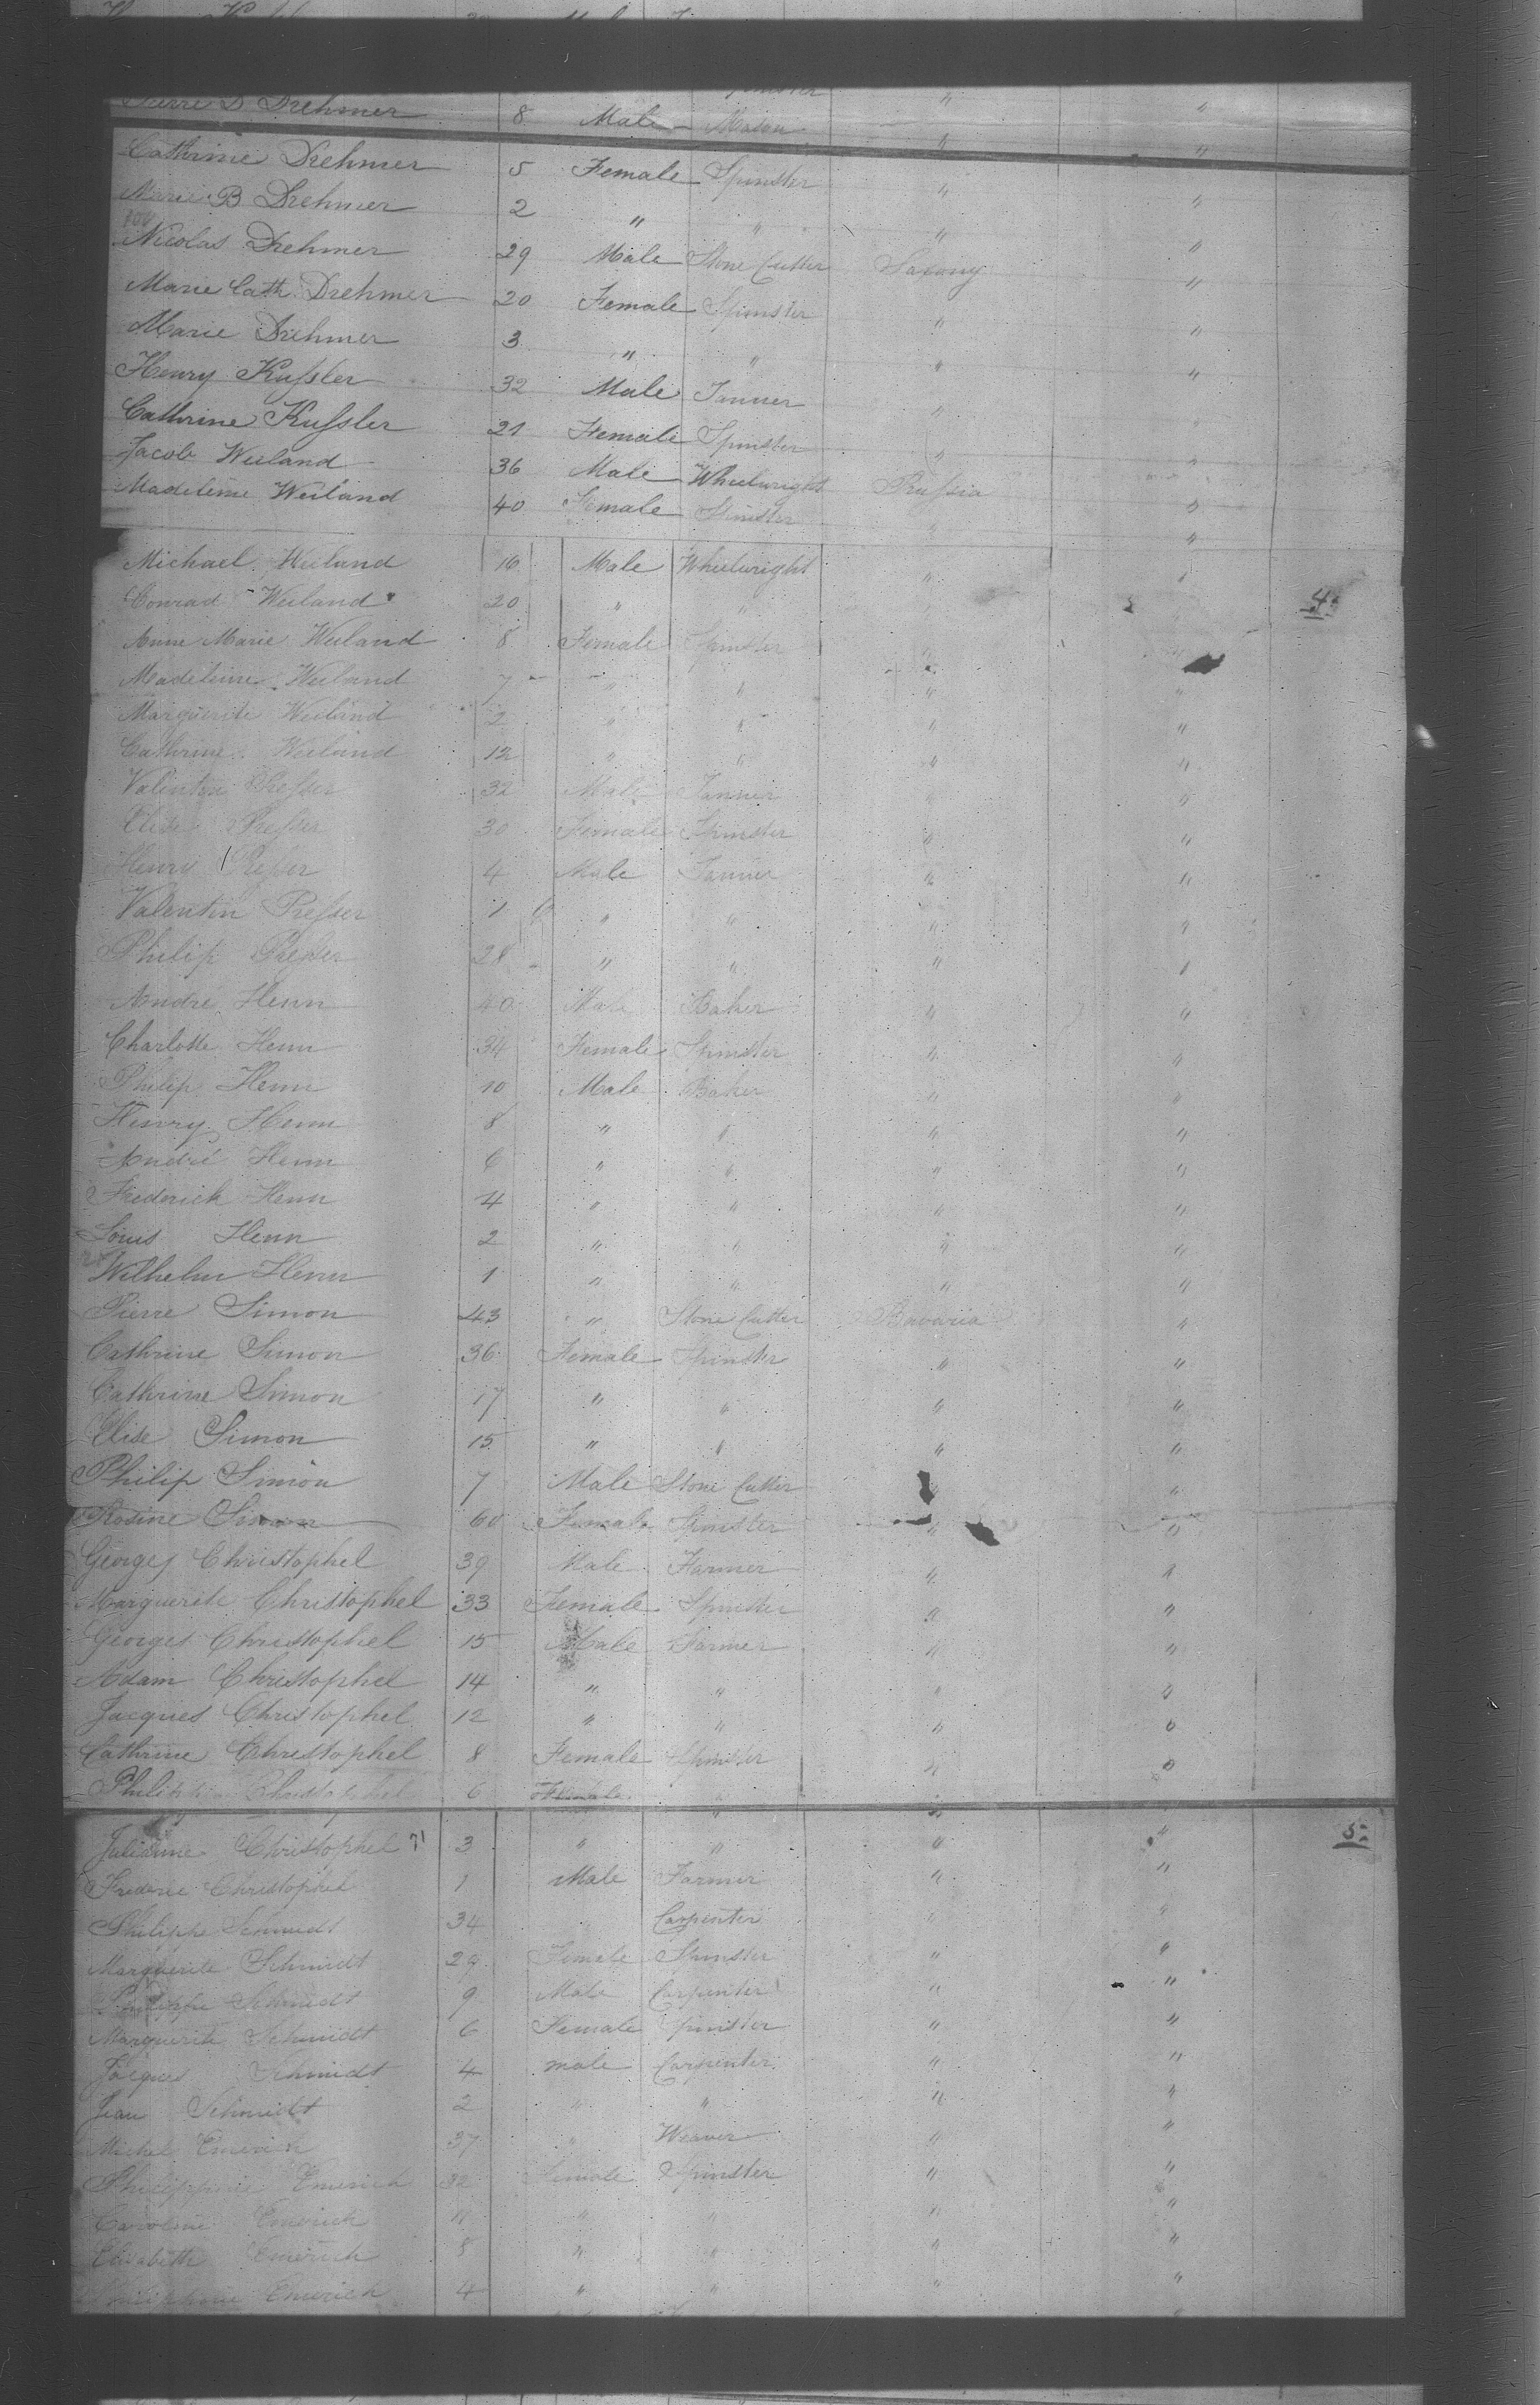 Pierre D Drehmer 8 Male Mason " "
Cathrine Drehmer 5 Female Spinster " "
Marie B Drehmer 2 " " " "
Nicolas Drehmer 29 Male Stone Cutter Saxony "
Marie Cath Drehmer 20 Female Spinster " "
Marie Drehmer 3 " " " "
Henry Kufsler 32 Male Tanner " "
Cathrine Kufsler 21 Female Spinster " "
Jacob Weiland 36 Male Wheelwright Prufsia "
Madeleine Weiland 40 Female Spinster " "
Michael Weiland 16 Male Wheelwright " "
Conrad Weiland 20 " " " 4
Anne Marie Weiland 8 Female Spinster "
Madeleine Weiland 7 " " " "
Marguerite Weiland 2 " " " "
Cathrine Weiland 12 " " " "
Valentin Prefser 32 Male Tanner " "
Elise Prefser 30 Female Spinster " "
Henry Prefser 4 Male Tanner " "
Valentin Prefser 1 " " " "
Philip Prefser 28 " " " "
André Henn 40 Male Baker " "
Charlotte Henn 34 Female Spinster " "
Philip Henn 10 Male Baker " "
Henry Henn 8 " " " "
André Henn 6 " " " "
Frederick Henn 4 " " " "
Louis Henn 2 " " " "
Wilhelm Henn 1 " " " "
Pierre Simon 43 " Stone Cutter Bavaria "
Cathrine Simon 36 Female Spinster " "
Cathrine Simon 17 " " " "
Elise Simon 15 " " " "
Philip Simon 7 Male Stone Cutter "
Rosine Simon 60 Female Spinster " "
Georges Christophel 39 Male Farmer " "
Marguerite Christophel 33 Female Spinster " "
Georges Christophel 15 Male Farmer " "
Adam Christophel 14 " " " "
Jacques Christophel 12 " " " "
Cathrine Christophel 8 Female Spinster " "
Christophel 6 Female " " "
Julianne Christophel 3 " " " " 5
Frederic Christophel 1 Male Farmer " "
Philippe Schmidt 34 " Carpenter " "
Marguerite Schmidt 29 Female Spinster " "
Philippe Schmidt 9 Male Carpenter " "
Marguerite Schmidt 6 Female Spinster " "
Jacques Schmidt 4 male Carpenter " "
Jean Schmidt 2 " " " "
Michel Emerich 37 " Weaver " "
Philippine Emerich 32 Female Spinster " "
Caroline Emerich 11 " " " "
Elisabeth Emerich 8 " " " "
Emerich 4 " " " "